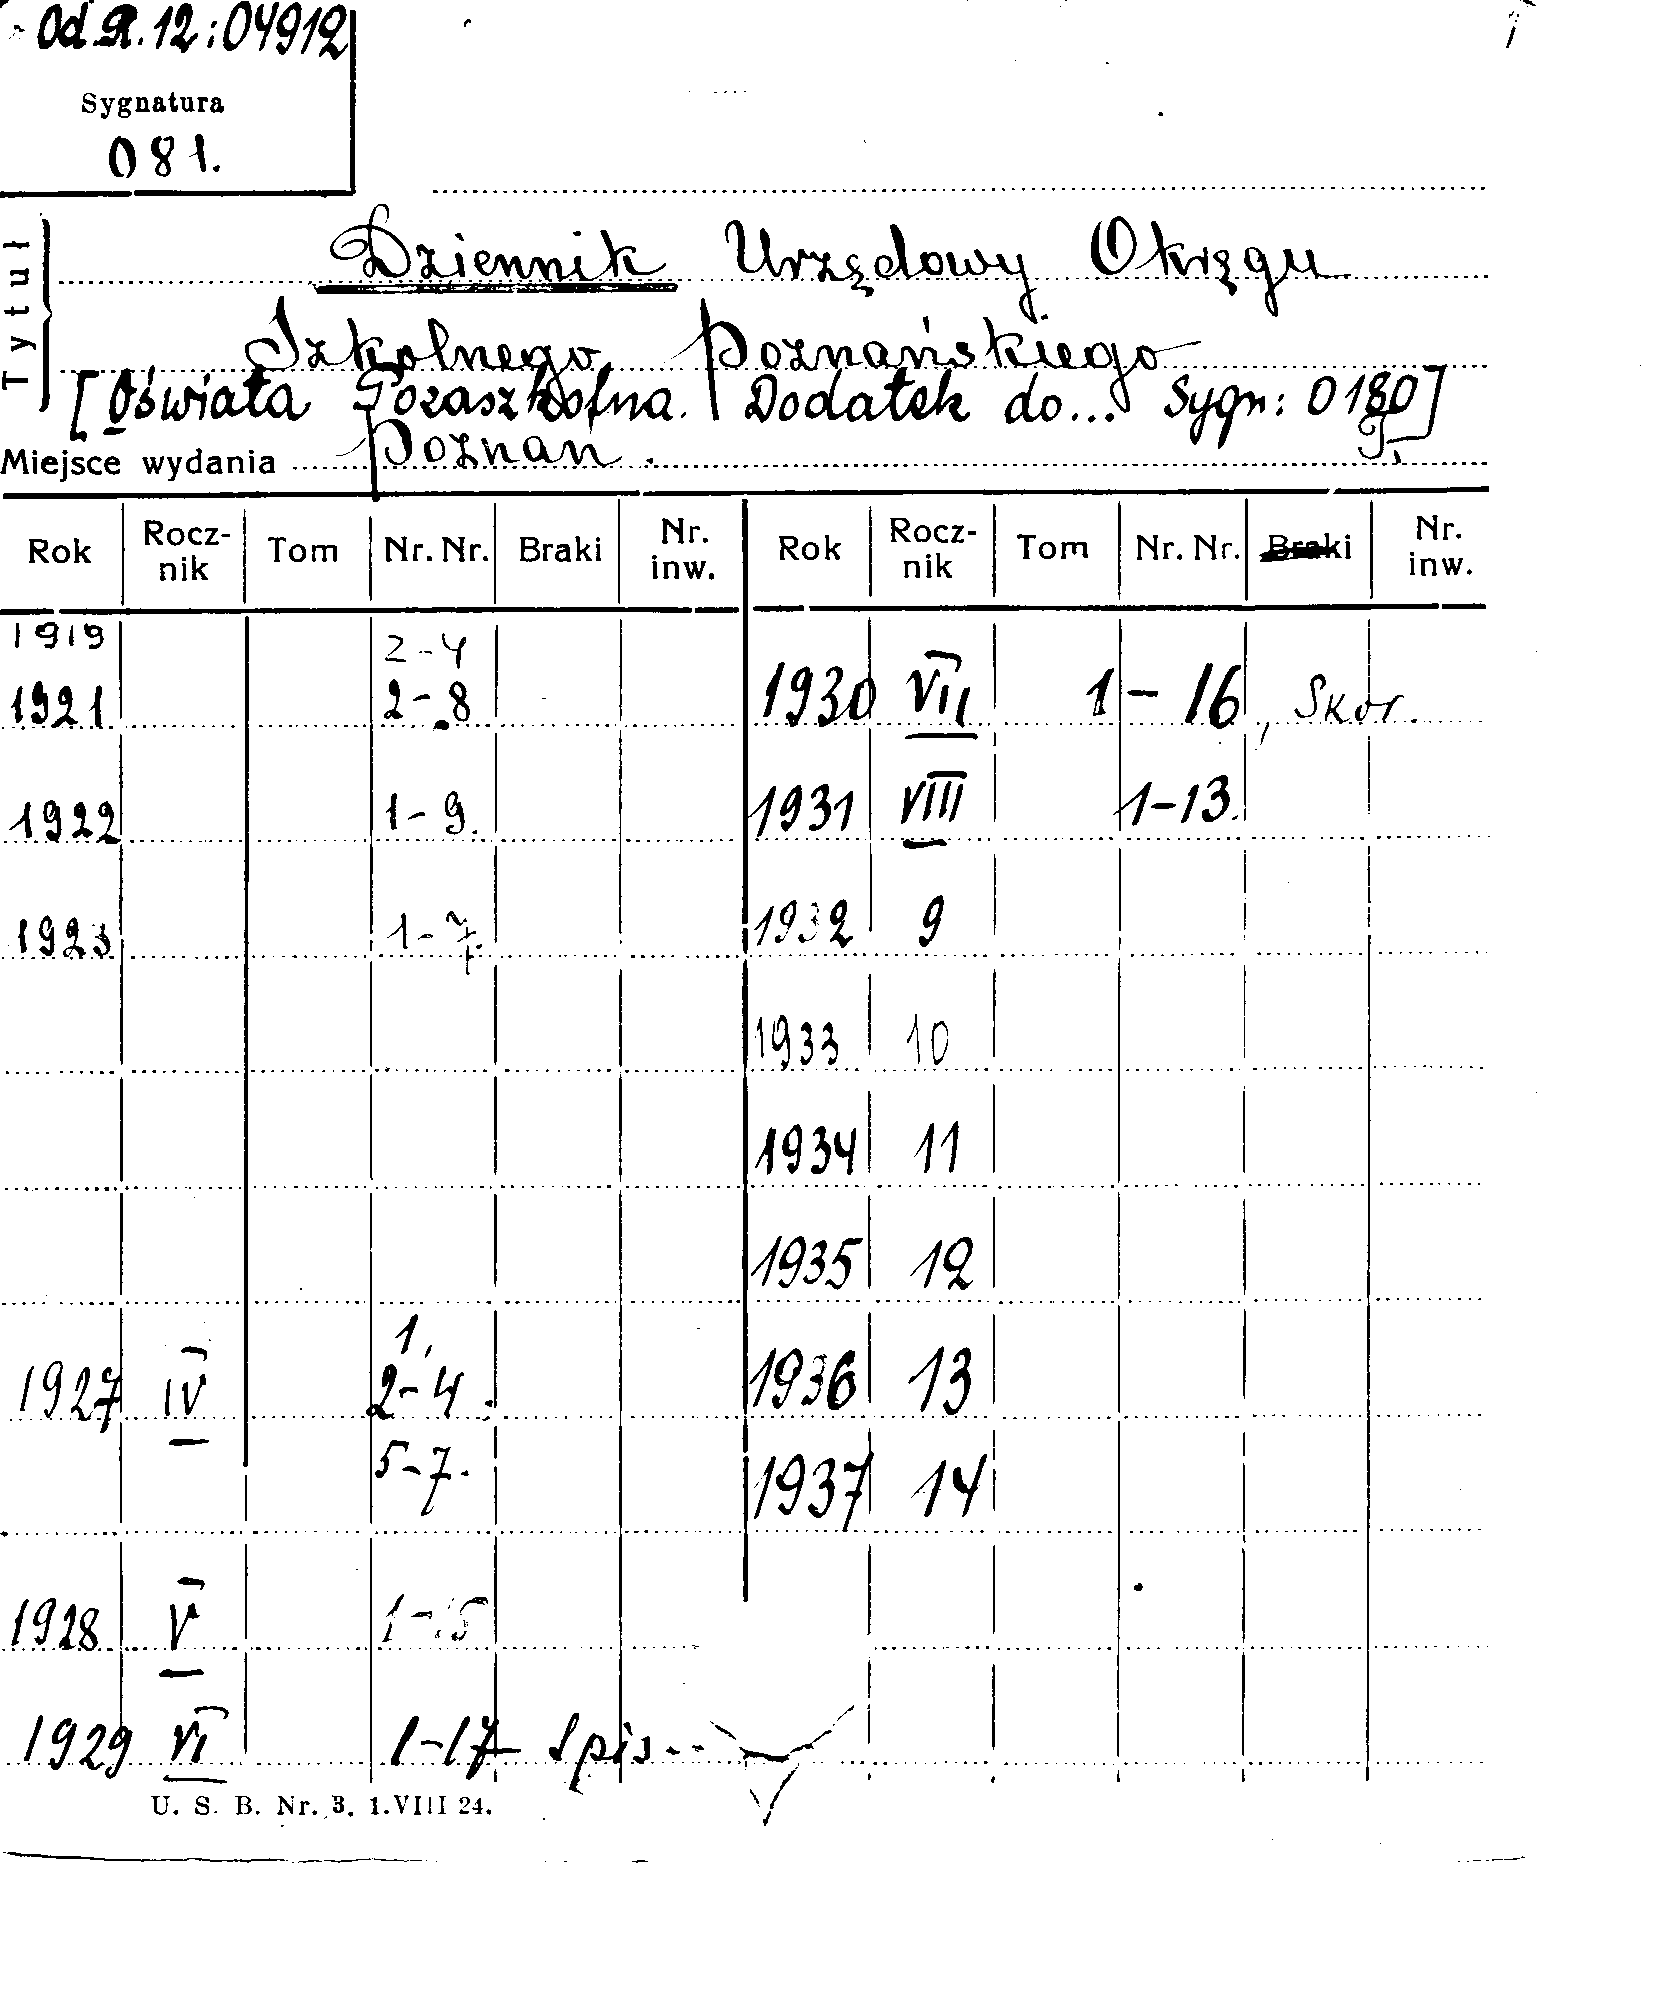 Od R. 12: 04912
Sygnatura
081.
Tytuł
Dziennik Urzędowy Okręgu
Szkolnego Poznańskiego
[Oświata Pozaszkolna. Dodatek do... Sygn: 0180]
Miejsce wydania Poznań.
Rok Rocz-nik Tom Nr. Nr. Braki Nr. inw. Rok Rocz-nik Tom Nr. Nr. Braki Nr. inw.
1919 2-4
1921 2-8 1930 VII 1-16, Skor.
1922 1-9. 1931 VIII 1-13.
1923 1-7. 1932 9
1933 10
1934 11
1935 12
1,
1927 IV 2-4. 1936 13
5-7. 1937 14
1928 V 1-15
1929 VI 1-17 Spis..
U. S. B. Nr. 3. 1.VIII 24.